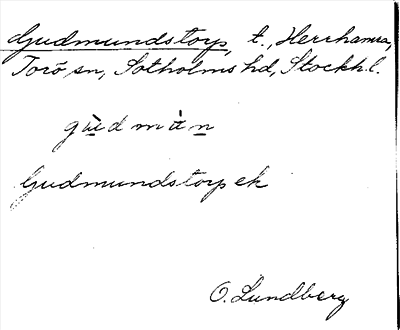 Gudmundstorp, t., Herrhamra,
Torö sn, Sotholms hd, Stockh. l.
gùdmàn
Gudmundstorp ek
O. Lundberg